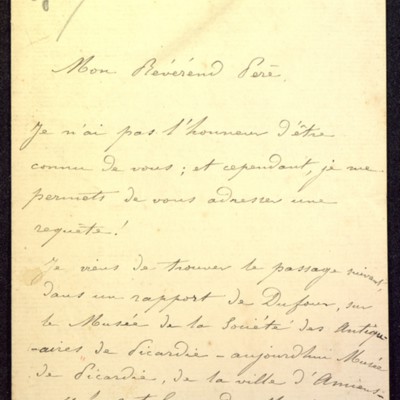 Mon Révérend Père,
Je n'ai pas l'honneur d'être
connu de vous ; et cependant, je me
permets de vous adresser une
requête !
Je viens de trouver le passage suivant
dans un rapport de Dufour, sur
le Musée de la Société des Antiqu-
-aires de Picardie - aujourdhui Musée
de Picardie, de la ville d'Amiens -